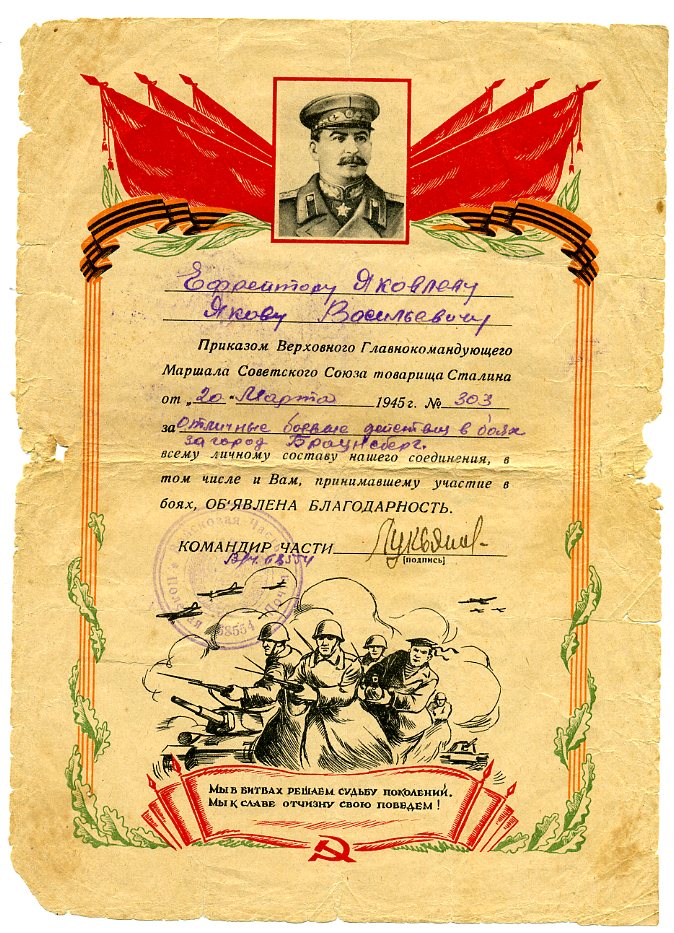 Ефрейтору Яковлеву
Якову Васильевичу
Приказом Верховного Главнокомандующего
Маршала Советского Союза товарища Сталина
от „20“ Марта 1945 г. № 303
за отличные боевые действия в боях
за город Браунсберг.
всему личному составу нашего соединения, в
том числе и Вам, принимавшему участие в
боях, ОБ'ЯВЛЕНА БЛАГОДАРНОСТЬ.
КОМАНДИР ЧАСТИ
[подпись]
В/ч. 68554
68554
Мы в битвах решаем судьбу поколений,
Мы к славе отчизну свою поведем!